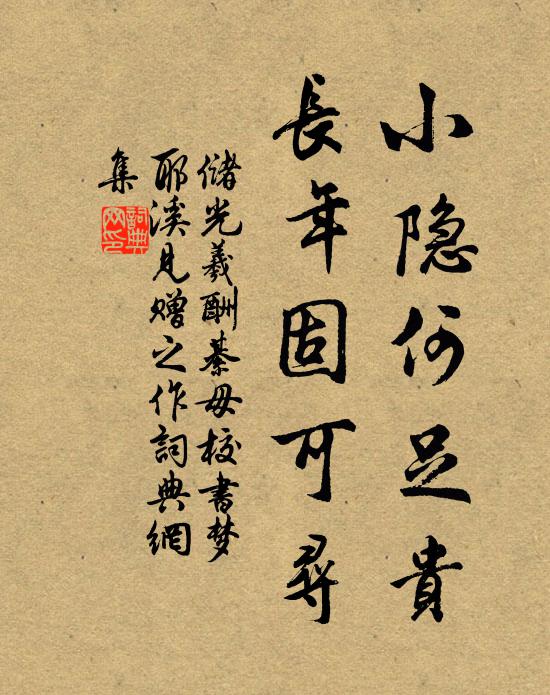 小隐何足貴
長年固可尋
儲光羲酬綦毋校書梦
耶溪見贈之作詞典網
集
詞典網印